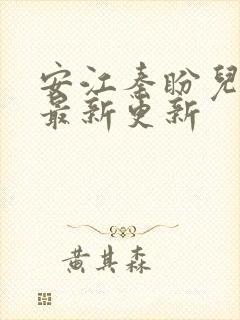 安江秦盼兒
最新更新
黄其森